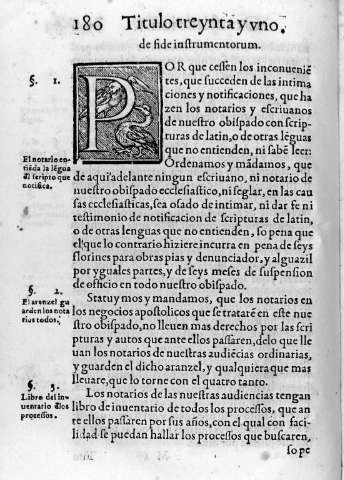 180 Titulo treynta y vno.
de fide instrumentorum.
§. 1.
POR que cessen los inconuenie̅
tes, que succeden de las intima
ciones y notificaciones, que ha
zen los notarios y escriuanos
de nuestro obispado con scrip-
turas de latin, o de otras le̅guas
que no entienden, ni sabe̅ leer:
Ordenamos y ma̅damos, que
de aqui adelante ningun escriuano, ni notario de
nuestro obispado ecclesiastico, ni seglar, en las cau
sas ecclesiasticas, sea osado de intimar, ni dar fe ni
testimonio de notificacion de scripturas de latin,
o de otras lenguas que no entienden, so pena que
el que lo contrario hiziere incurra en pena de seys
florines para obras pias y denunciador, y alguazil
por yguales partes, y de seys meses de suspension
de officio en todo nuestro obispado.
El notario en-
tie̅da la le̅gua
del scripto que
notifica.
§. 2.
El aranzel gu
arden los nota
rios todos.
Statuymos y mandamos, que los notarios en
los negocios apostolicos que se tratare̅ en este nue
stro obispado, no lleuen mas derechos por las scri
pturas y autos que ante ellos passaren, delo que lle
uan los notarios de nuestras audie̅cias ordinarias,
y guarden el dicho aranzel, y qualquiera que mas
lleuare, que lo torne con el quatro tanto.
§. 3.
Libro del in-
uentario dlos
processos.
Los notarios de las nuestras audiencias tengan
libro de inuentario de todos los processos, que an
te ellos passaren por sus años, con el qual con faci-
lidad se puedan hallar los processos que buscaren,
so pe